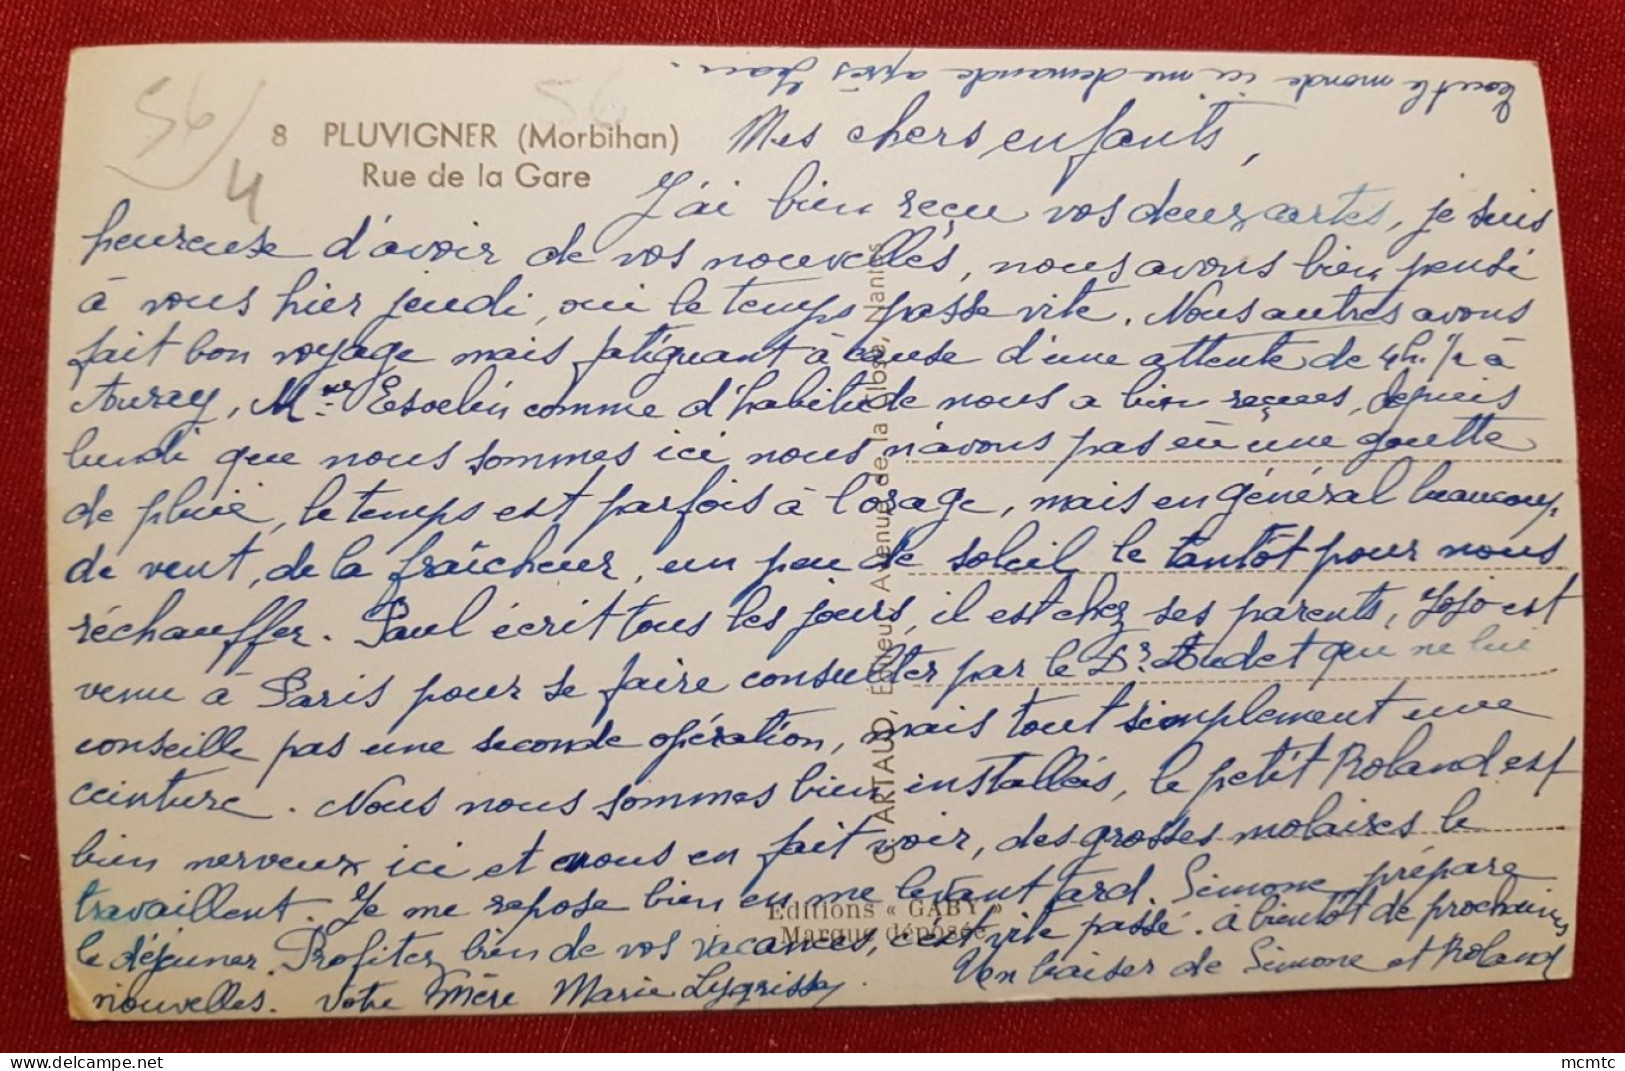 Tout le monde ici me demande après Jean.
56/4
56
8 PLUVIGNER (Morbihan)
Rue de la Gare
Mes chers enfants,
J'ai bien reçu vos deux cartes, je suis
heureuse d'avoir de vos nouvelles, nous avons bien pensé
à vous hier jeudi, oui le temps passe vite. Nous autres avons
fait bon voyage mais fatiguant à cause d'une attente de 4h. 1/2 à
Auray, Mme comme d'habitude nous a bien reçues, depuis
lundi que nous sommes ici nous n'avons pas eu une goutte
de pluie, le temps est parfois à l'orage, mais en général beaucoup
de vent, de la fraîcheur, un peu de soleil le tantôt pour nous
réchauffer. Paul écrit tous les jours, il est chez ses parents, Jojo est
venu à Paris pour se faire consulter par le Dr que ne lui
conseille pas une seconde opération, mais tout simplement une
ceinture. Nous nous sommes bien installés, le petit Roland est
bien nerveux ici et nous en fait voir, des grosses molaires le
travaillent. Je me repose bien en me levant tard. Simone prépare
le déjeuner. Profitez bien de vos vacances, c'est vite passé. à bientôt de prochaines
nouvelles. Votre Mère Marie
Un baiser de Simone et Roland
C. ARTAUD, Éditeur, Avenue de la Close, Nantes
Editions « GABY »
Marque déposée
mcmtc